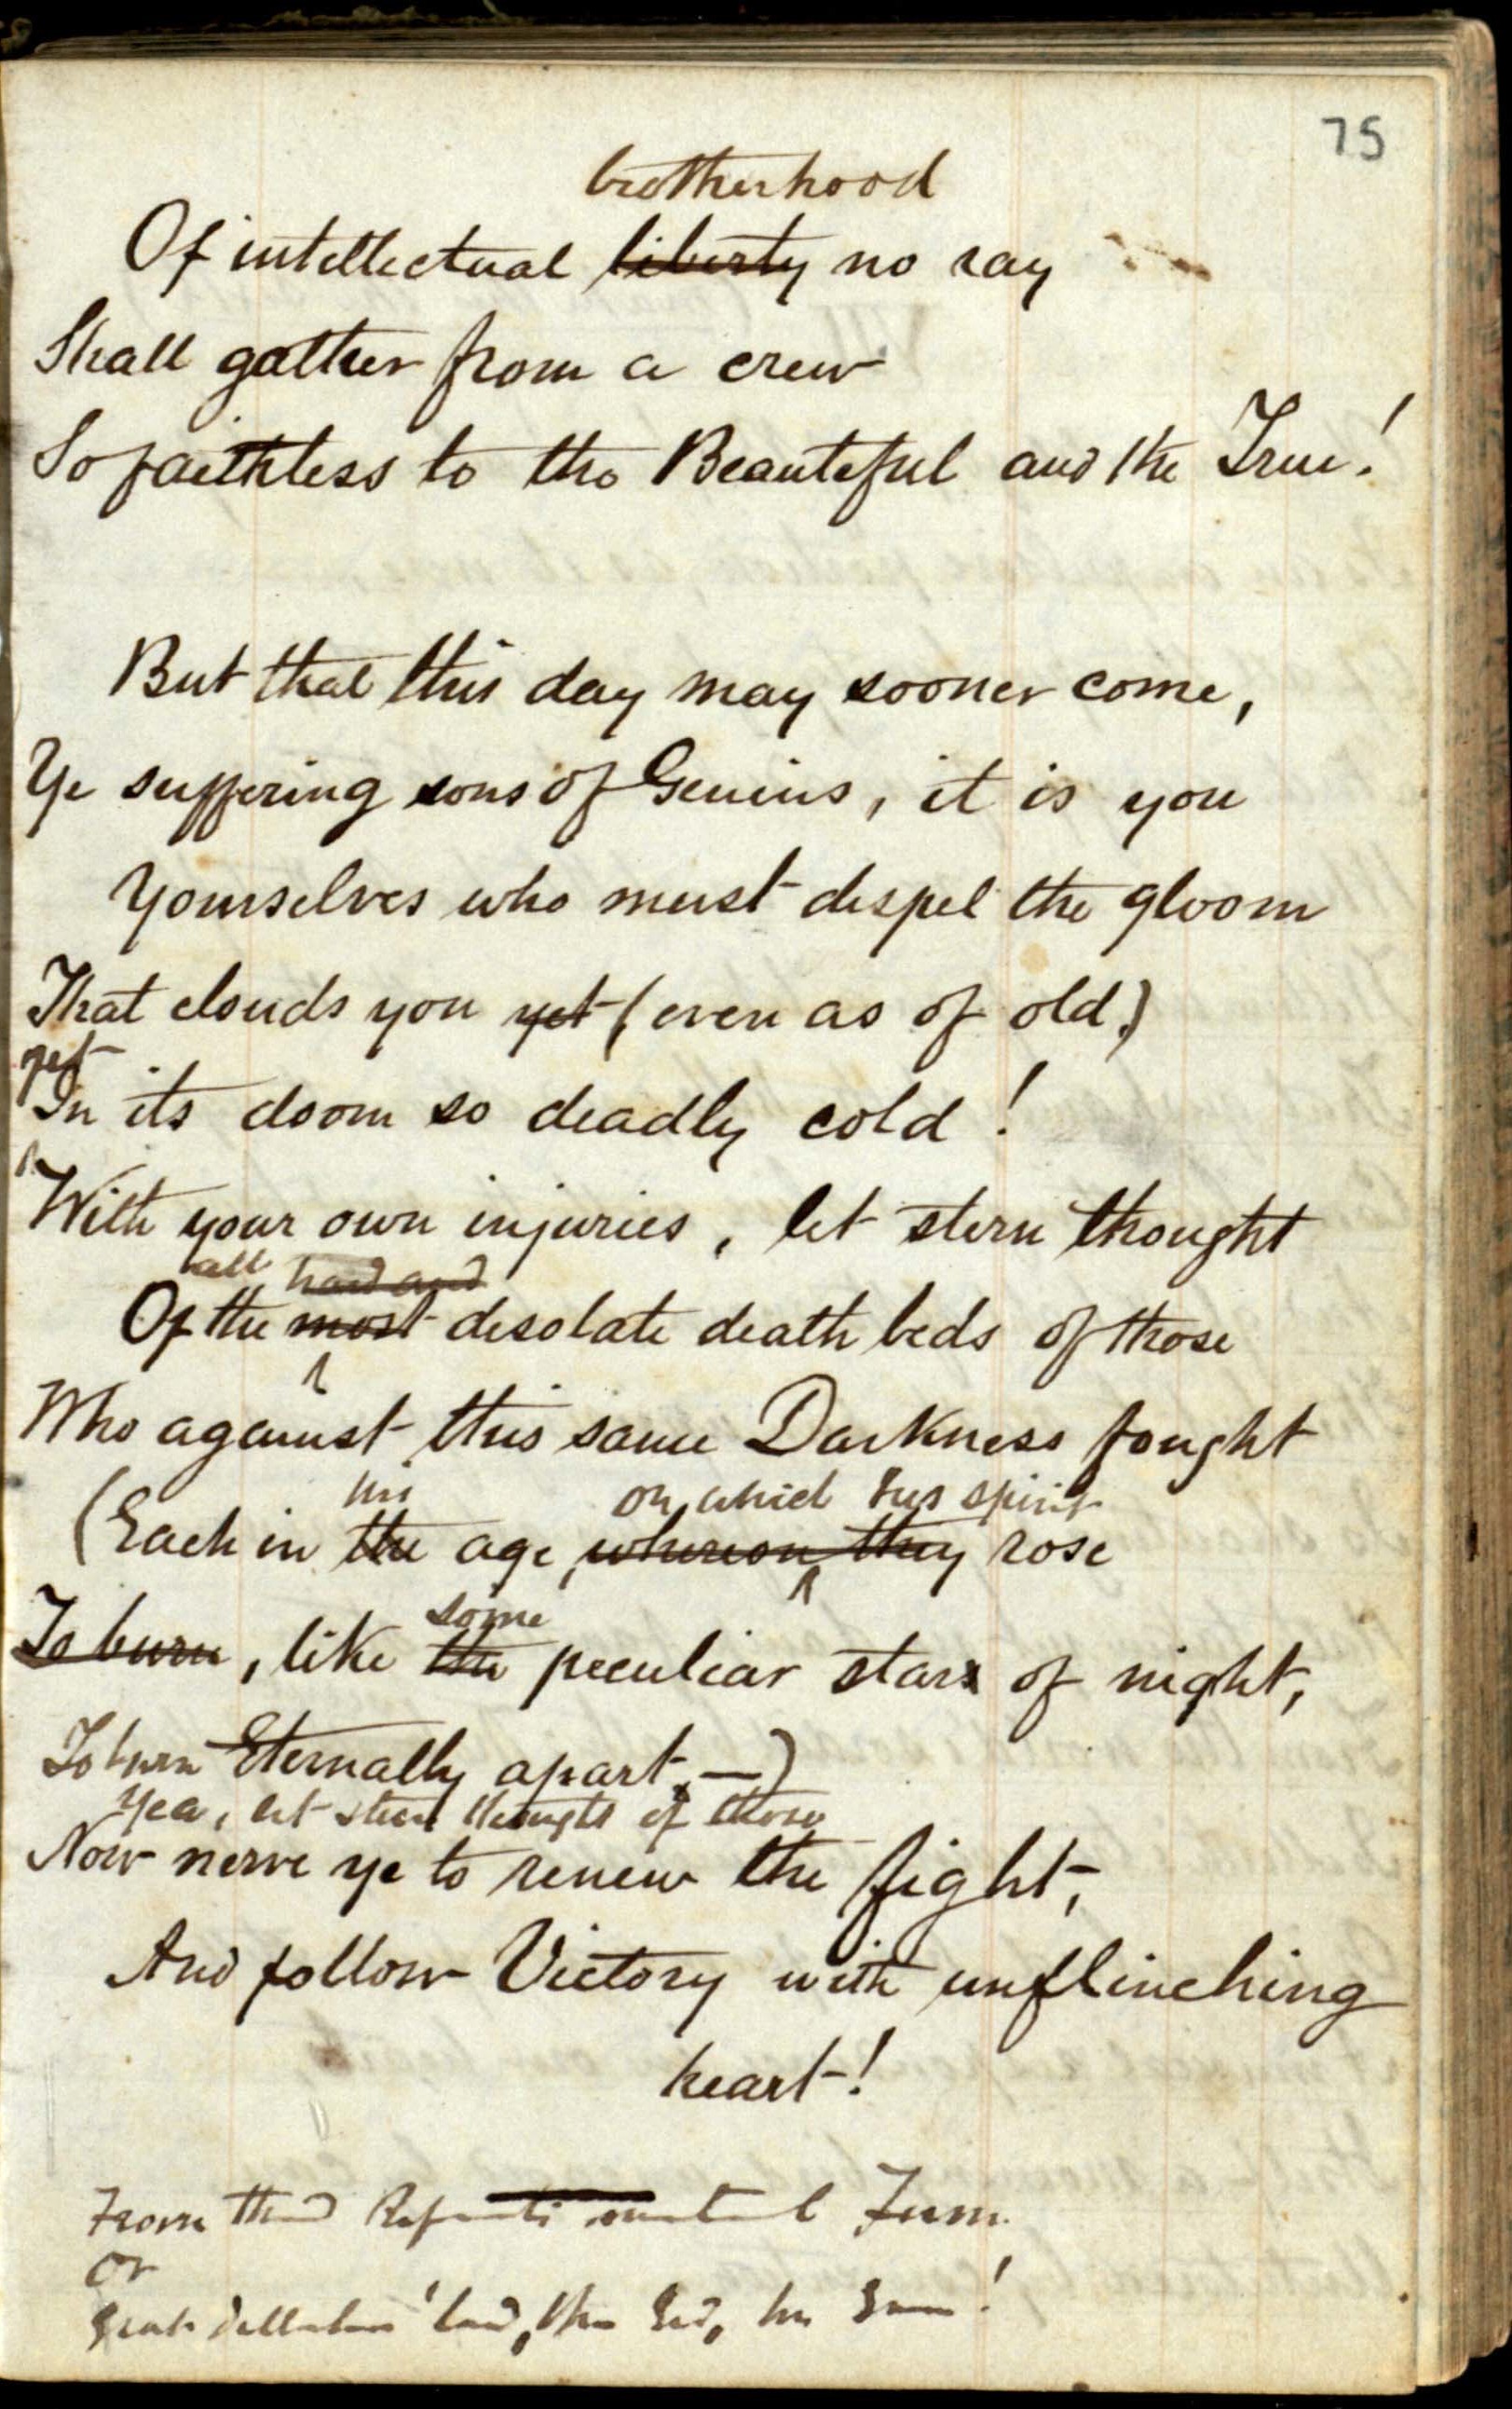 75
brotherhood
Of intellectual liberty no ray
Shall gather from a crew
So faithless to the Beautiful and the True!
But that this day may sooner come,
Ye suffering sons of Genius, it is you
Yourselves who must dispel the gloom
That clouds you yet (even as of old)
yet
In its doom so deadly cold!
With your own injuries, let stern thought
all hard and
Of the most desolate death beds of those
Who against this same Darkness fought
his on which his spirit
(Each in the age, whereon they rose
some
To burn, like the peculiar stars of night,
To burn Eternally apart,—)
Yea, let stern thought of those
Now nerve ye to renew the fight,
And follow Victory with unflinching
heart!
From the
or
the